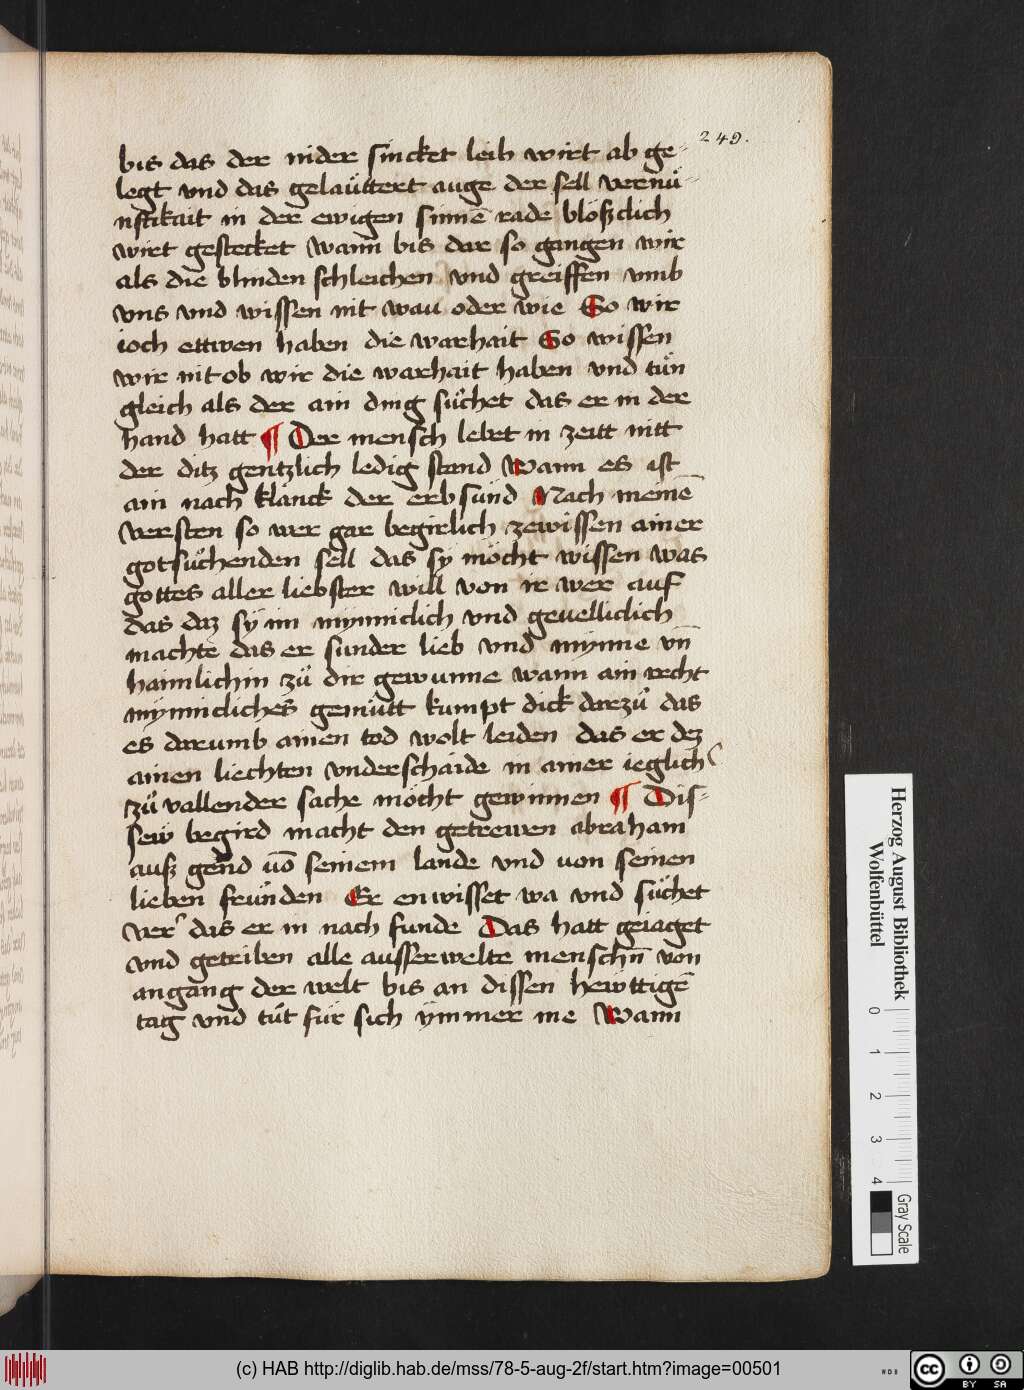 249.
bis das der nider sincket leib wirt ab ge-
legt vnd das geläuttert auge der sell vernu̍-
nftikait in der ewigen sinnē rade blöszclich
wirt gestecket Wann bis dar so gangen wir
als die blinden schleichen vnd greiffen vmb
vns vnd wissen nit wau oder wie So wir
ioch ettwen haben die warhait So wissen
wir nit ob wir die warhait haben vnd tu̍n
gleich als der ain ding su̍chet das er in der
hand hatt ¶ Der mensch lebet in zeitt nitt
der ditz gentzlich ledig stand Wann es ist
ain nach klanck der erbsünd Nach meinē
versten so wer gar begirlich zewissen ainer
gotsu̍chenden sell das sy möcht wissen was
gottes aller liebster will von ir wer auf
das daz sÿ im mynniclich vnd geuelliclich
machte das er sunder lieb vnd mynne vn̄
haimlichin zu̍ dir gewunne wann ain recht
mynnicliches gemu̍tt kumpt dick darzu̍ das
es darumb ainen tod wolt leiden das er dez
ainen liechten vnderschaide in ainer ieglich
zu̍ vallender sache möcht gewinnen ¶ Dis-
sew begird macht den getrewen abraham
ausz gend vō seinem lande vnd von seinen
lieben freu̍nden Er enwisset wa vnd su̍chet
ver das er in nach funde Das hatt geiaget
vnd getriben alle ausserwelte menschn̄ von
angang der welt bis an dissen hewttigē
tag vnd tu̍t für sich ÿmmer me Wann
Herzog August Bibliothek
Wolfenbüttel
0 1 2 3 4
Gray Scale
(c) HAB http://diglib.hab.de/mss/78-5-aug-2f/start.htm?image=00501
cc BY SA